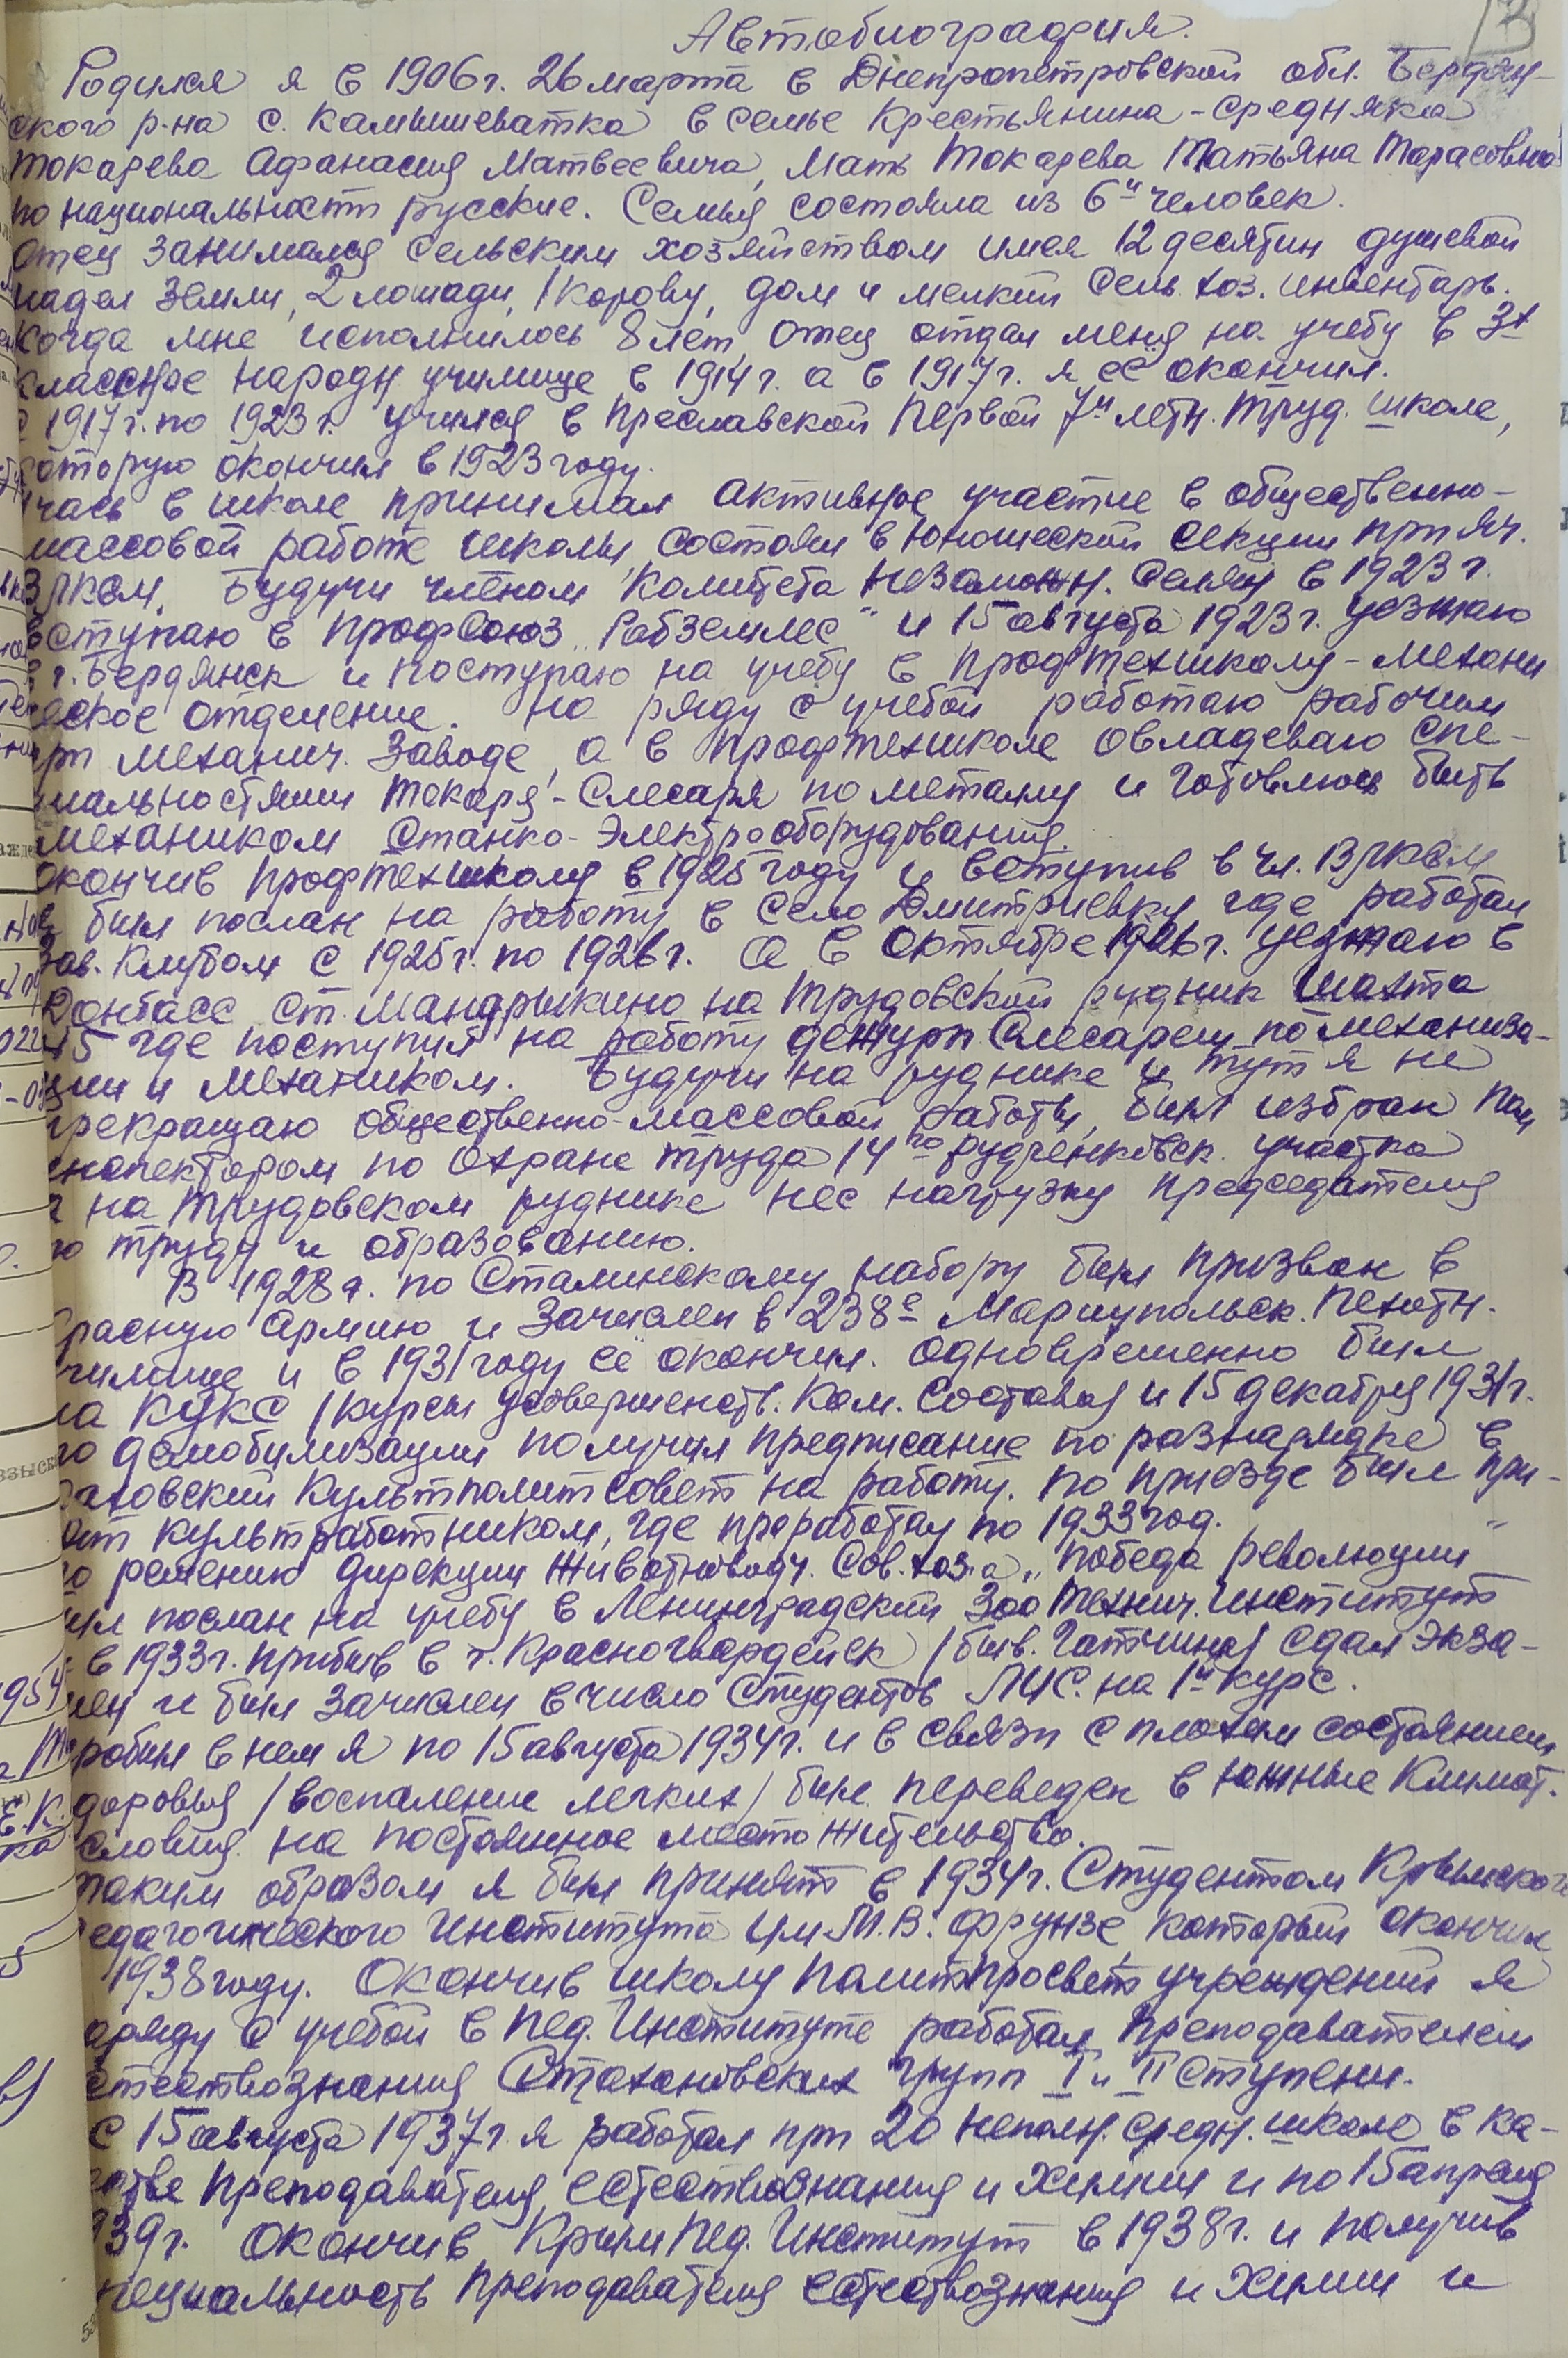 Автобиография.
Родился я в 1906 г. 26 марта в Днепропетровской обл. Бердян-
ского р-на с. Камышеватка в семье крестьянина-средняка
Токарева Афанасия Матвеевича, мать Токарева Татьяна Тарасовна
по национальности русские. Семья состояла из 6и человек.
Отец занимался сельским хозяйством имея 12 десятин душевой
надел земли, 2 лошади, 1 корову, дом и мелкий сель. хоз. инвентарь.
Когда мне исполнилось 8 лет отец отдал меня на учебу в 3х
классное народн училище в 1914 г. а в 1917 г. я её окончил.
С 1917 г. по 1923 г. учился в Преславской Первой 7и летн. труд. школе,
которую окончил в 1923 году.
учась в школе принимал активное участие в общественно-
массовой работе школы, состоял в юношеской секции при яч.
ВЛКСМ. Будучи членом Комитета незаможн. селян в 1923 г.
вступаю в профсоюз „Рабземлес" и 15 августа 1923 г. уезжаю
в г. Бердянск и поступаю на учебу в профтехшколу-механи
ческое отделение. На ряду с учебой работаю рабочим
при механич. заводе, а в профтехшколе овладеваю спе-
циальностями токаря-слесаря по металлу и готовлюсь быть
механиком станко-электрооборудования.
Окончив профтехшколу в 1925 году и вступив в чл. ВЛКСМ
я был послан на работу в село Дмитриевку, где работал
Зав. Клубом с 1925 г. по 1926 г. а в октябре 1926 г. уезжаю в
Донбасс ст. Мандрыкино на Трудовской рудник шахта
5 где поступил на работу дежурн. слесарем по механиза-
ции и механиком. Будучи на руднике и тут я не
прекращаю общественно-массовой работы, был избран пом
инспектором по охране труда 14го Рудченковск. участка
а на Трудовском руднике нес нагрузку председателя
по труду и образованию.
В 1928 г. по Сталинскому набору был призван в
Красную армию и зачислен в 238е Мариупольск. пехотн.
училище и в 1931 году её окончил. Одновременно был
на КУКС /курсы усовершенств. Ком. состава/ и 15 декабря 1931 г.
по демобилизации получил предписание по разнарядке в
культполитсовет на работу. По приезде был при-
нят культработником, где проработал по 1933 год.
по решению дирекции животноводч. сов. хоза „Победа революции"
был послан на учебу в Ленинградский Зоотехнич. институт
в 1933 г. прибыв в г. Красногвардейск /быв. Гатчина/ сдал экза-
мен и был зачислен в число студентов на 1й курс.
пробыл в нем я по 15 августа 1934 г. и в связи с плохим состоянием
здоровья /воспаление легких/ был переведен в южные климат.
условия на постоянное место жительство.
Таким образом я был принят в 1934 г. студентом Крымского
педагогического института им М.В. Фрунзе который окончил
1938 году. Окончив школу политпросвет учреждений я
наряду с учебой в пед. институте работал преподавателем
естествознания стахановских групп I и II ступени.
С 15 августа 1937 г. я работал при 20 неполн. средн. школе в ка-
честве преподавателя естествознания и химии и по 15 апреля
1939 г. Окончив Крым пед. институт в 1938 г. и получив
специальность преподавателя естествознания и химии и